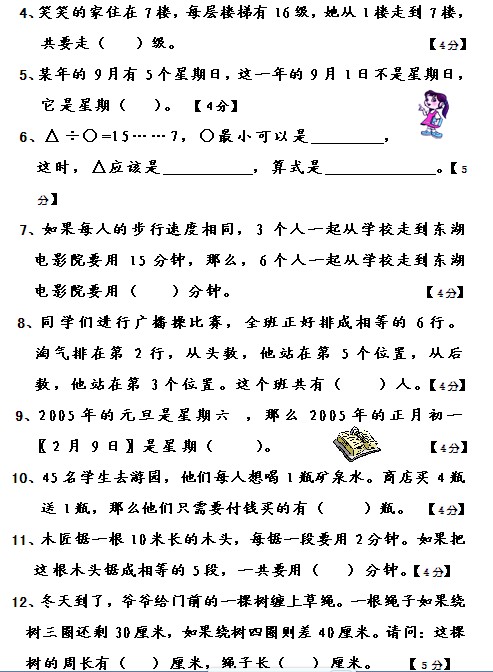 4、笑笑的家住在7楼，每层楼梯有16级，她从1楼走到7楼，
共要走（　）级。 【4分】
5、某年的9月有5个星期日，这一年的9月1日不是星期日，
它是星期（　）。 【4分】
6、△÷○=15……7，○最小可以是________，
这时，△应该是__________，算式是____________。【5
分】
7、如果每人的步行速度相同，3个人一起从学校走到东湖
电影院要用15分钟，那么，6个人一起从学校走到东湖
电影院要用（　）分钟。 【4分】
8、同学们进行广播操比赛，全班正好排成相等的6行。
淘气排在第2行，从头数，他站在第5个位置，从后
数，他站在第3个位置。这个班共有（　）人。【4分】
9、2005年的元旦是星期六 ，那么2005年的正月初一
〖2月9日〗是星期（　）。 【4分】
10、45名学生去游园，他们每人想喝1瓶矿泉水。商店买4瓶
送1瓶，那么他们只需要付钱买的有（　）瓶。 【4分】
11、木匠锯一根10米长的木头，每锯一段要用2分钟。如果把
这根木头锯成相等的5段，一共要用（　）分钟。【4分】
12、冬天到了，爷爷给门前的一棵树缠上草绳。一根绳子如果绕
树三圈还剩30厘米，如果绕树四圈则差40厘米。请问：这棵
树的周长有（　）厘米，绳子长（　）厘米。 【5分】